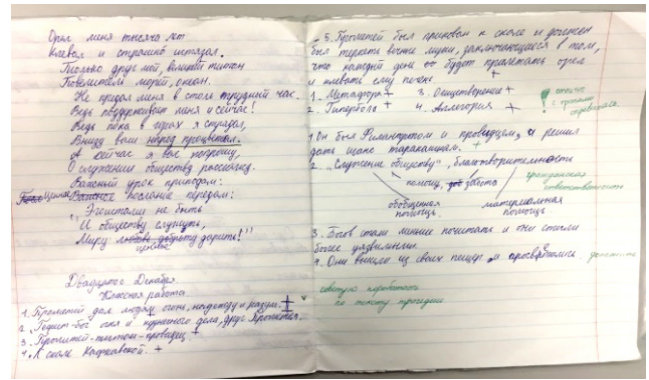 Орёл меня тысячу лет
Клевал и страшно истязал.
Только друг мой, великий титан
Повелитель морей, океан.
Не предал меня в столь трудный час.
Ведь поддерживает меня и сейчас!
Ведь пока в горах я страдал,
Внизу ваш народ процветал.
А сейчас я вас попрошу,
О служении обществу расскажу.
Важный урок преподам:
послание передам:
Эгоистами не быть
"И обществу служить,
Миру доброту дарить!"
Двадцатое Декабря
Классная работа
1. Прометей дал людям огонь, надежду и разум. +
2. Гефест-бог огня и кузнечного дела, друг Прометея.
3. Прометей-титан-провидец +
4. К скале Кавказской. +
5. Прометей был прикован к скале и должен
был терпеть вечные муки, заключающиеся в том,
что каждый день будет прилетать орёл
и клевать ему печень. +
1. Метафора + 3. Олицетворение +
2. Гипербола + 4. Аллегория +
1. Он был Филантропом и провидцем, и решил
дать шанс тараканцам. +
2. "Служение обществу", благотворительность
помощь, забота
гражданская
ответственность
материальная
помощь. помощь.
3. Богов стали меньше почитать и они стали
более уязвимыми.
4. Они вышли из своих пещер и
по тексту трагедии